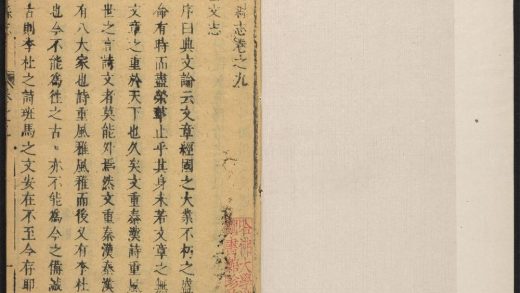 志卷之九
文志
序曰典文論云文章經國之大業不朽之盛
命有時而盡榮華止乎其身未若文章之無
文章之重於天下也久矣文重秦漢詩重風
世之言詩文者莫能外焉然文重秦漢秦漢
有八大家也詩重風雅風雅而後又有李杜
也今不能爲徃之古亦不能爲今之備誠
古則李杜之詩班馬之文安在不至今存耶